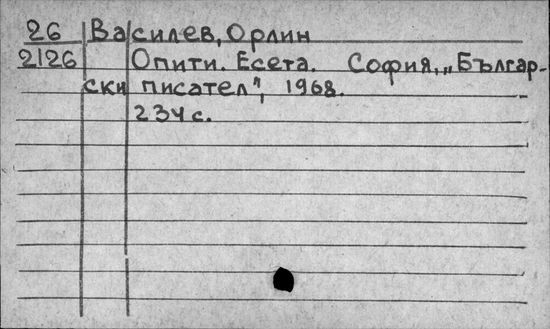 26 Василев, Орлин
2126 Опити. Есета. София, „Българ-
ски писател", 1968.
234 с.